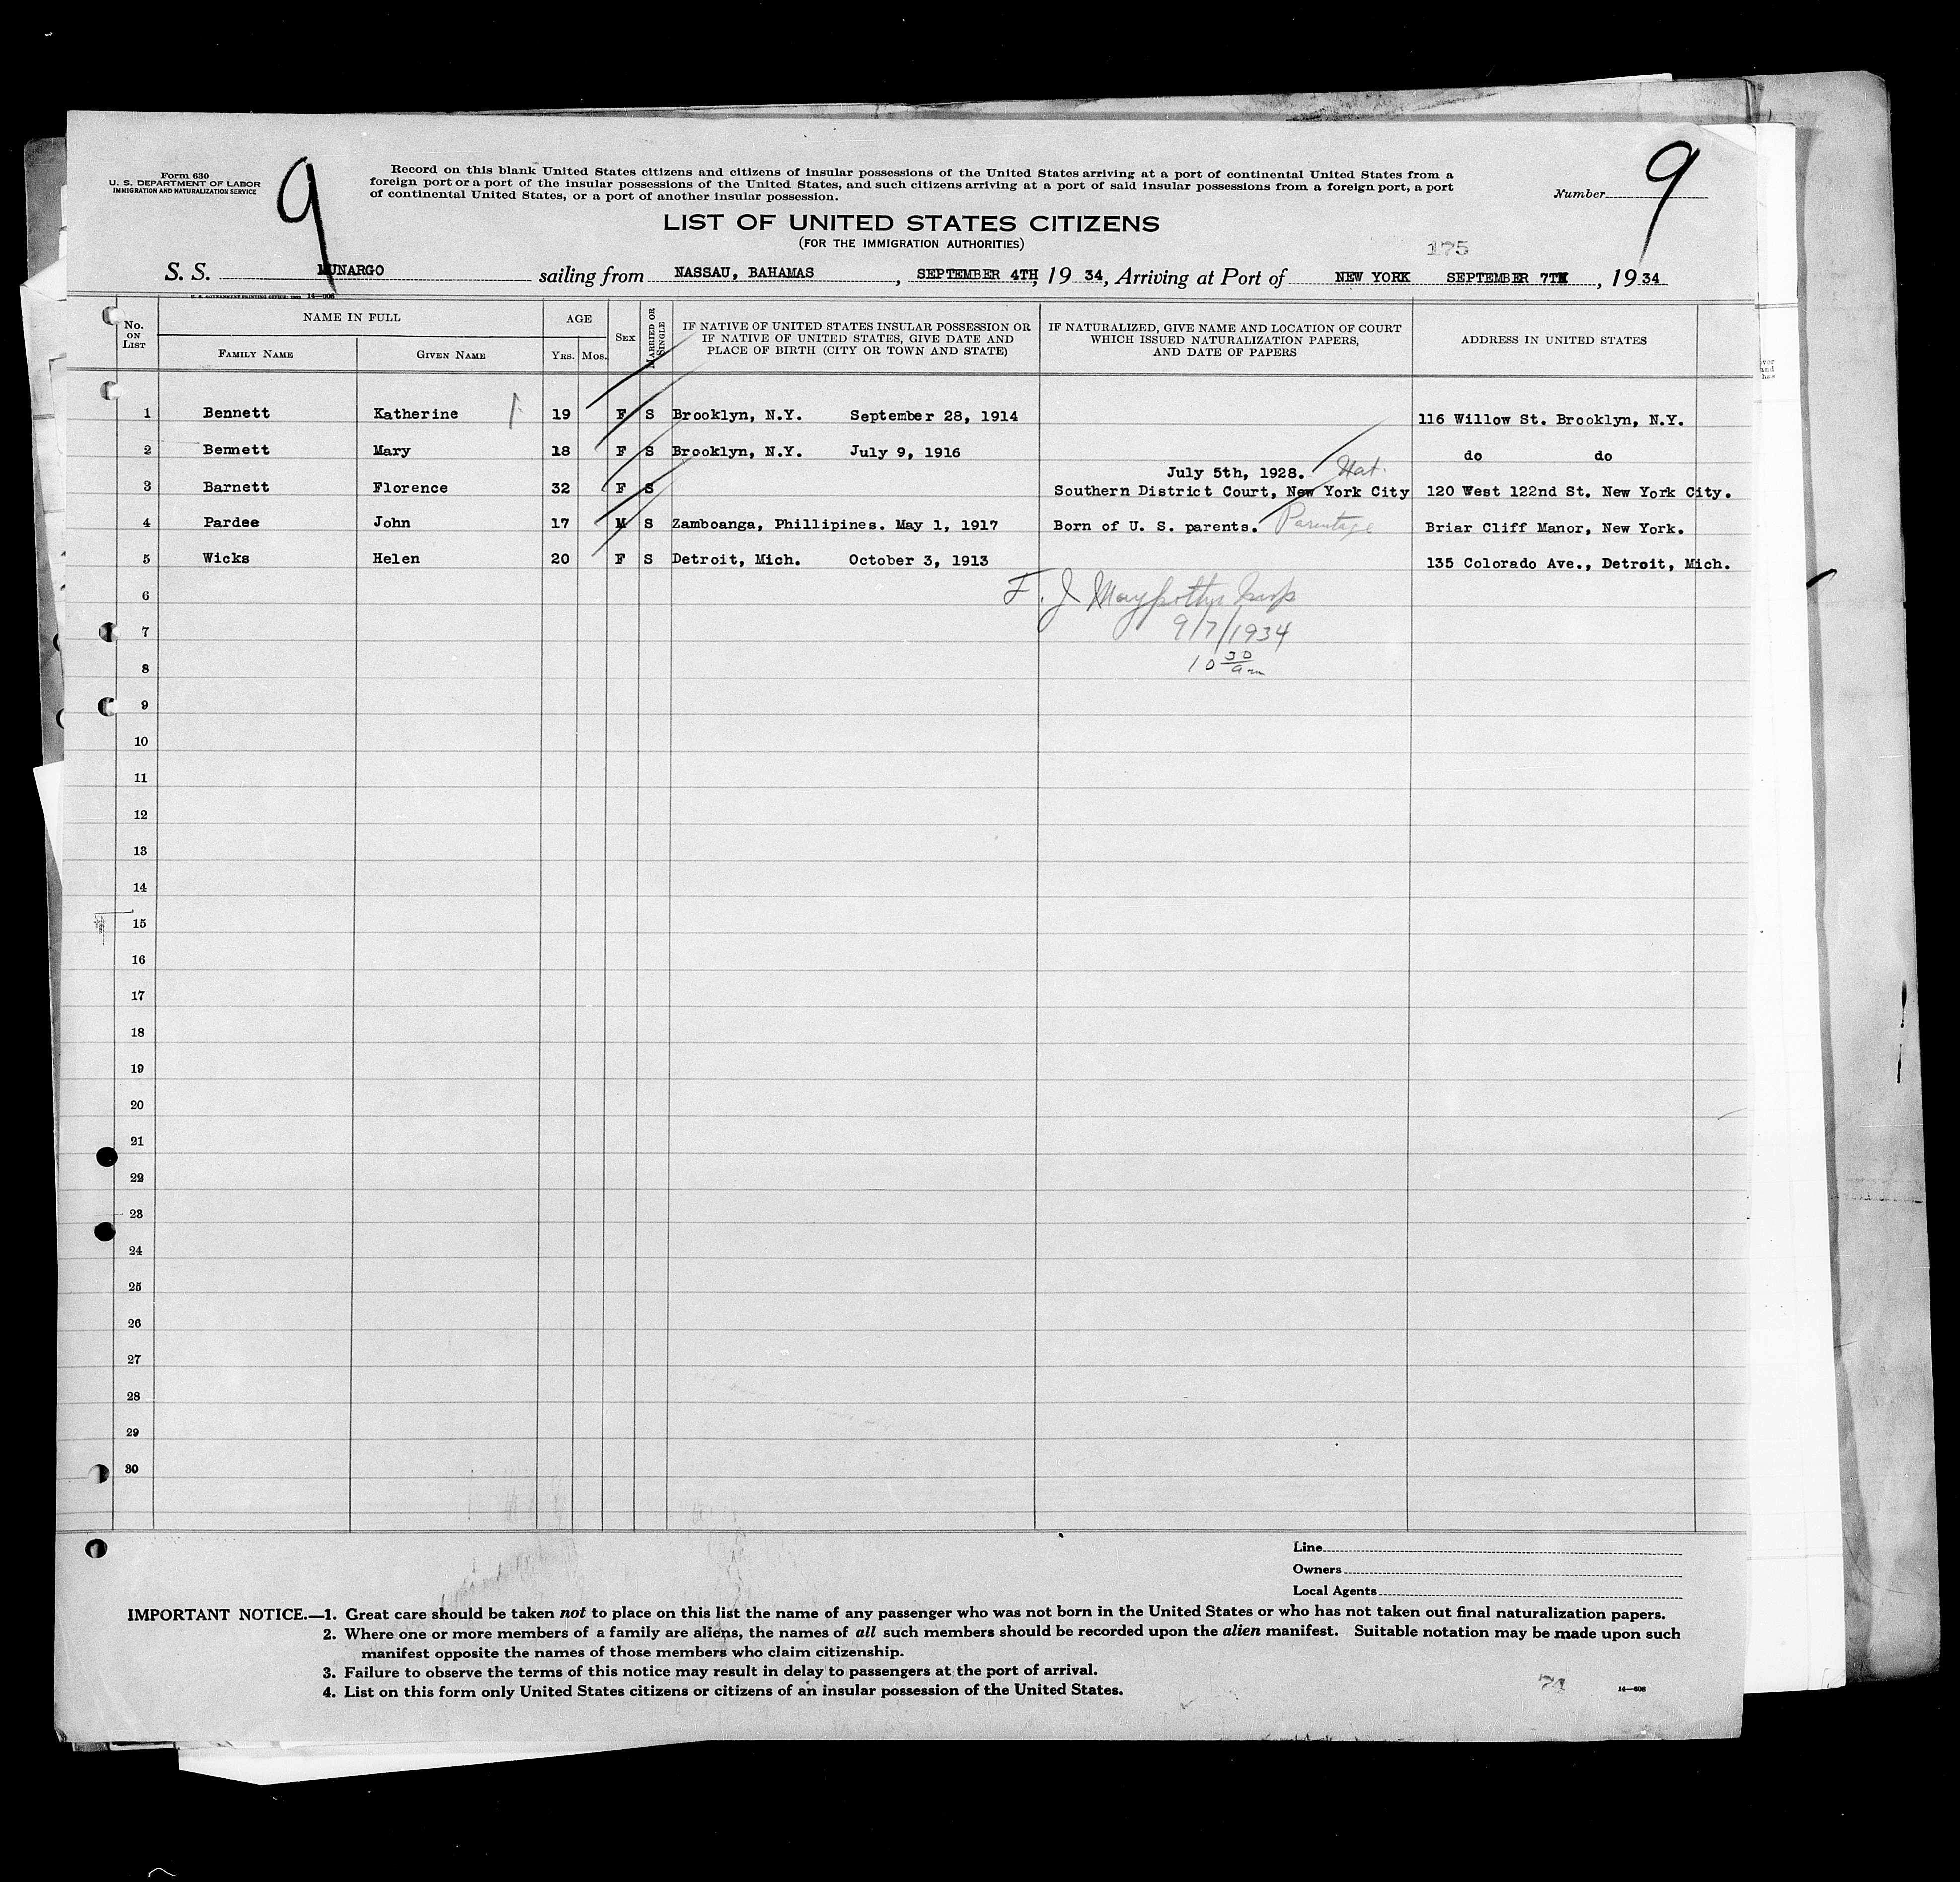 Form 630
U. S. DEPARTMENT OF LABOR
IMMIGRATION AND NATURALIZATION SERVICE
9
Record on this blank United States citizens and citizens of insular possessions of the United States arriving at a port of continental United States from a
foreign port or a port of the insular possessions of the United States, and such citizens arriving at a port of said insular possessions from a foreign port, a port
of continental United States, or a port of another insular possession.
Number 9
LIST OF UNITED STATES CITIZENS
(FOR THE IMMIGRATION AUTHORITIES)
175
S. S. MUNARGO sailing from NASSAU, BAHAMAS, SEPTEMBER 4TH, 19 34, Arriving at Port of NEW YORK SEPTEMBER 7TH, 19 34
U. S. GOVERNMENT PRINTING OFFICE: 14—606
No. ON LIST
NAME IN FULL
FAMILY NAME
GIVEN NAME
AGE
YRS. MOS.
SEX
MARRIED OR SINGLE
IF NATIVE OF UNITED STATES INSULAR POSSESSION OR
IF NATIVE OF UNITED STATES, GIVE DATE AND
PLACE OF BIRTH (CITY OR TOWN AND STATE)
IF NATURALIZED, GIVE NAME AND LOCATION OF COURT
WHICH ISSUED NATURALIZATION PAPERS,
AND DATE OF PAPERS
ADDRESS IN UNITED STATES
1 Bennett Katherine 19 F S Brooklyn, N.Y. September 28, 1914 116 Willow St. Brooklyn, N.Y.
2 Bennett Mary 18 F S Brooklyn, N.Y. July 9, 1916 do do
July 5th, 1928. Nat.
3 Barnett Florence 32 F S Southern District Court, New York City 120 West 122nd St. New York City.
4 Pardee John 17 M S Zamboanga, Phillipines. May 1, 1917 Born of U. S. parents. Parentage Briar Cliff Manor, New York.
5 Wicks Helen 20 F S Detroit, Mich. October 3, 1913 135 Colorado Ave., Detroit, Mich.
6 F. J
7 9/7/1934
8 10 30 am
9
10
11
12
13
14
15
16
17
18
19
20
21
22
23
24
25
26
27
28
29
30
Line
Owners
Local Agents
IMPORTANT NOTICE.—1. Great care should be taken not to place on this list the name of any passenger who was not born in the United States or who has not taken out final naturalization papers.
2. Where one or more members of a family are aliens, the names of all such members should be recorded upon the alien manifest. Suitable notation may be made upon such
manifest opposite the names of those members who claim citizenship.
3. Failure to observe the terms of this notice may result in delay to passengers at the port of arrival.
4. List on this form only United States citizens or citizens of an insular possession of the United States.
14—606